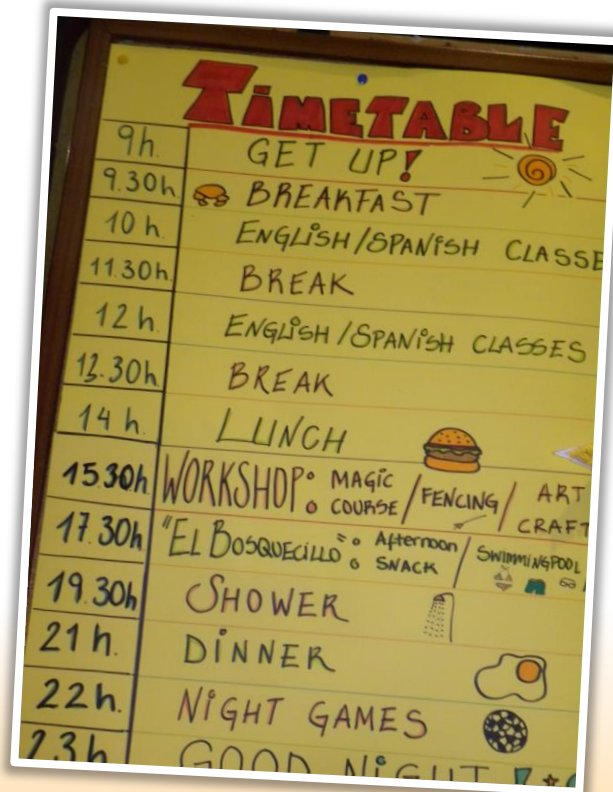 TiMETABLE
9h. GET UP!
9.30h. BREAKFAST
10 h. ENGLiSH/SPANiSH CLASSE
11.30h. BREAK
12 h. ENGLiSH/SPANiSH CLASSES
13.30h. BREAK
14 h. LUNCH
15.30h. WORKSHOP: MAGiC COURSE / FENCiNG / ART CRAFT
17.30h. "EL BOSQUECiLLO": Afternoon SNACK / SWiMMiNGPOOL
19.30h. SHOWER
21 h. DiNNER
22h. NiGHT GAMES
23h GOOD NiGHT